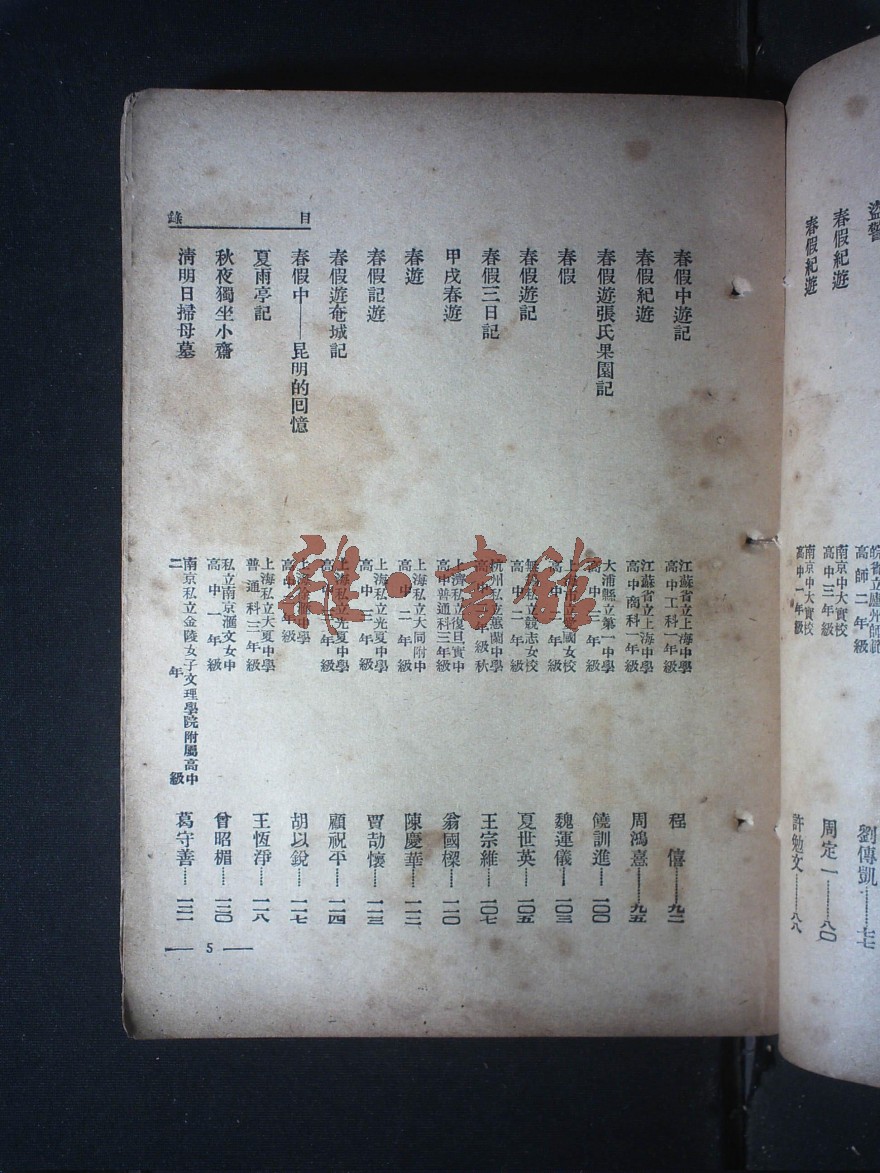 盜警
劉傳凱……七七
春假紀遊
南京中大實校
高中三年級
周定一……八〇
春假紀遊
南京中大實校
高中一年級
許勉文……八八
目錄
春假中遊記
江蘇省立上海中學
高中工科一年級
程僖……九二
春假紀遊
江蘇省立上海中學
高中商科一年級
周鴻熹……九五
春假遊張氏果園記
大浦縣立第一中學
饒訓進……一〇〇
春假
魏運儀……一〇三
春假遊記
無錫私立競志女校
高中二年級
夏世英……一〇五
春假三日記
杭州私立蕙蘭中學
王宗維……一〇七
甲戌春遊
上海私立復旦實中
高中普通科三年級
翁國樑……一一〇
春遊
上海私立大同附中
高中二年級
陳慶華……一一二
春假記遊
上海私立光夏中學
高中三年級
賈劼懷……一一三
春假遊奄城記
上海私立光夏中學
顧祝平……一一四
春假中——昆明的回憶
胡以銳……一一七
夏雨亭記
上海私立大夏中學
普通科三年級
王恆淨……一一八
秋夜獨坐小齋
私立南京滙文女中
高中一年級
曾昭楣……一二〇
淸明日掃母墓
南京私立金陵女子文理學院附屬高中
二年級
葛守善……一二一
5
雜·書館